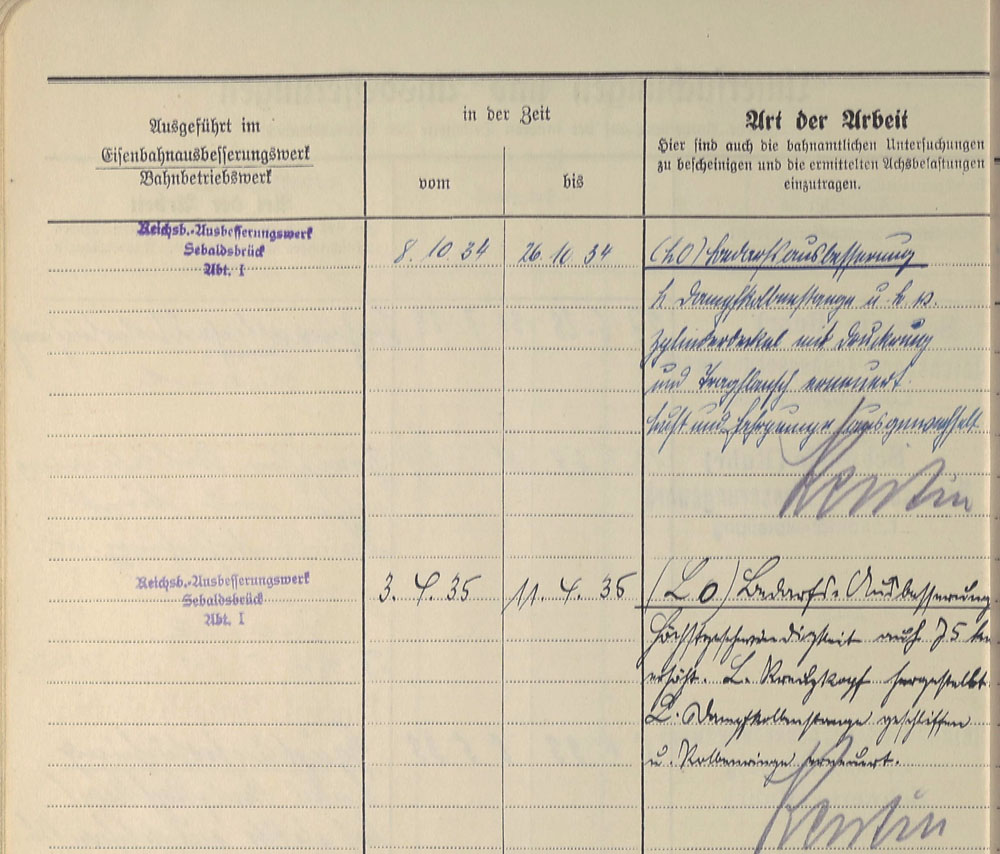 Ausgeführt im
Eisenbahnausbesserungswerk
Bahnbetriebswerk
in der Zeit
vom
bis
Art der Arbeit
Hier sind auch die bahnamtlichen Untersuchungen
zu bescheinigen und die ermittelten Achsbelastungen
einzutragen.
Reichsb.-Ausbesserungswerk
Sebaldsbrück
Abt. I
8. 10. 34
26. 10. 34
(L0) Bedarfsausbesserung
Dampfkolbenstange u.
Zylinderdeckel mit Druckring
und Tragflansch erneuert.
ausgewechselt
Reichsb.-Ausbesserungswerk
Sebaldsbrück
Abt. I
3. 4. 35
11. 4. 35
(L0) Bedarfs-Ausbesserung
Höchstgeschwindigkeit auf 75 km
erhöht. L. Kreuzkopf hergestellt.
L. Dampfkolbenstange geschliffen
u. Kolbenringe erneuert.